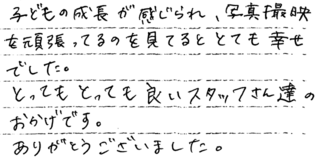 子どもの成長が感じられ、写真撮映
を頑張ってるのを見てるととても幸せ
でした。
とってもとっても良いスタッフさん達の
おかげです。
ありがとうございました。